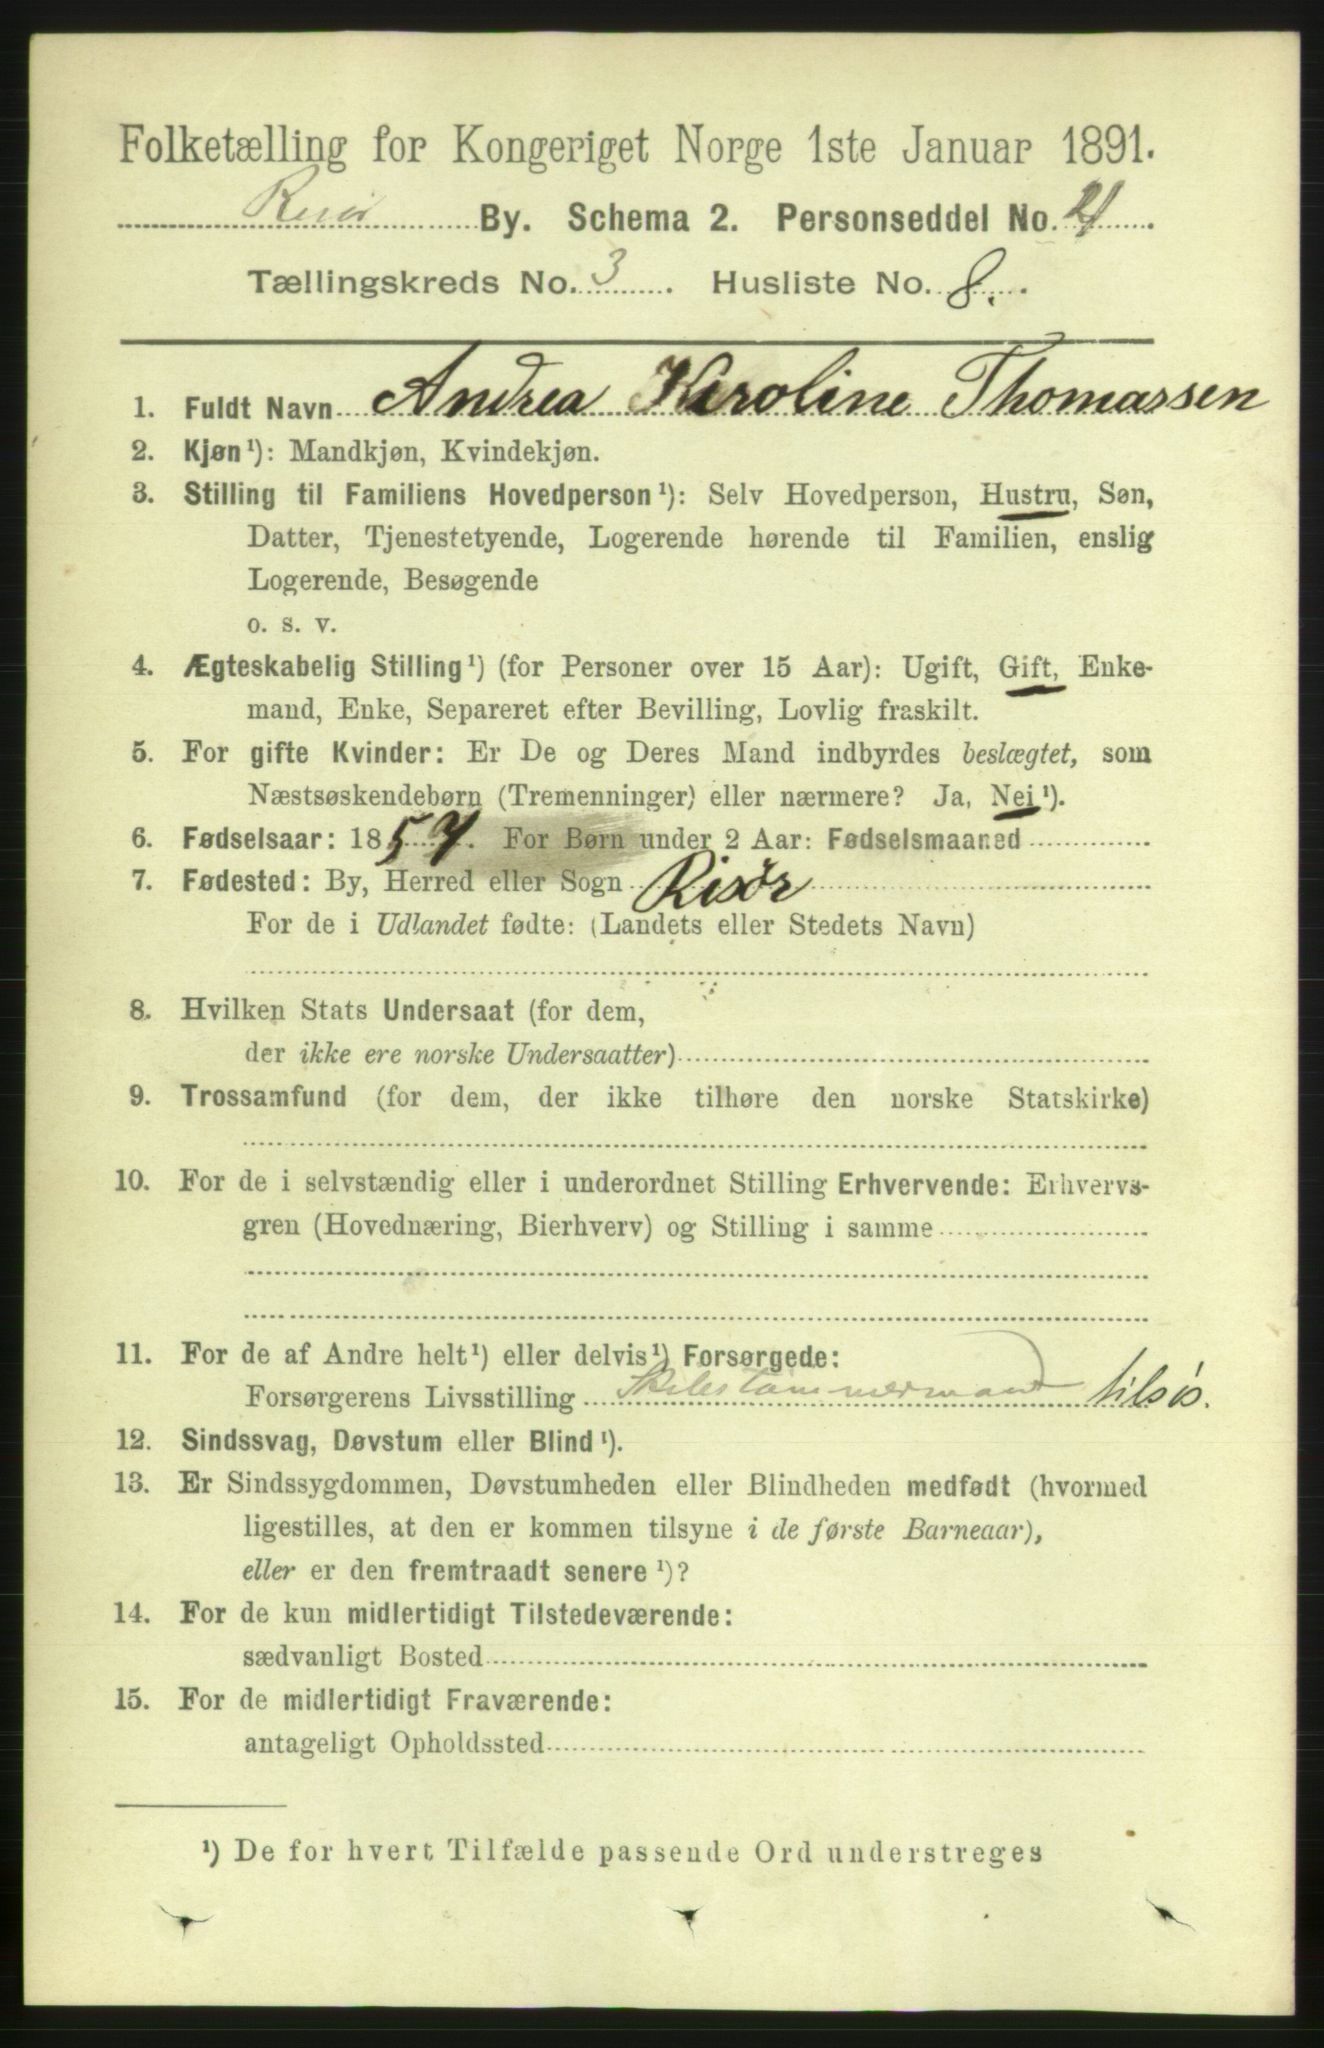 Folketælling for Kongeriget Norge 1ste Januar 1891.
Risør By. Schema 2. Personseddel No. 21
Tællingskreds No. 3. Husliste No. 8.
1. Fuldt Navn Andrea Karoline Thomassen
2. Kjøn¹): Mandkjøn, Kvindekjøn.
3. Stilling til Familiens Hovedperson¹): Selv Hovedperson, Hustru, Søn,
Datter, Tjenestetyende, Logerende hørende til Familien, enslig
Logerende, Besøgende
o. s. v.
4. Ægteskabelig Stilling¹) (for Personer over 15 Aar): Ugift, Gift, Enke-
mand, Enke, Separeret efter Bevilling, Lovlig fraskilt.
5. For gifte Kvinder: Er De og Deres Mand indbyrdes beslægtet, som
Næstsøskendebørn (Tremenninger) eller nærmere? Ja, Nei¹).
6. Fødselsaar: 1857. For Børn under 2 Aar: Fødselsmaaned
7. Fødested: By, Herred eller Sogn Risør
For de i Udlandet fødte: (Landets eller Stedets Navn)
8. Hvilken Stats Undersaat (for dem,
der ikke ere norske Undersaatter)
9. Trossamfund (for dem, der ikke tilhøre den norske Statskirke)
10. For de i selvstændig eller i underordnet Stilling Erhvervende: Erhvervs-
gren (Hovednæring, Bierhverv) og Stilling i samme
11. For de af Andre helt¹) eller delvis¹) Forsørgede:
Forsørgerens Livsstilling tømmermand tilsøs.
12. Sindssvag, Døvstum eller Blind¹).
13. Er Sindssygdommen, Døvstumheden eller Blindheden medfødt (hvormed
ligestilles, at den er kommen tilsyne i de første Barneaar),
eller er den fremtraadt senere¹)?
14. For de kun midlertidigt Tilstedeværende:
sædvanligt Bosted
15. For de midlertidigt Fraværende:
antageligt Opholdssted
¹) De for hvert Tilfælde passende Ord understreges